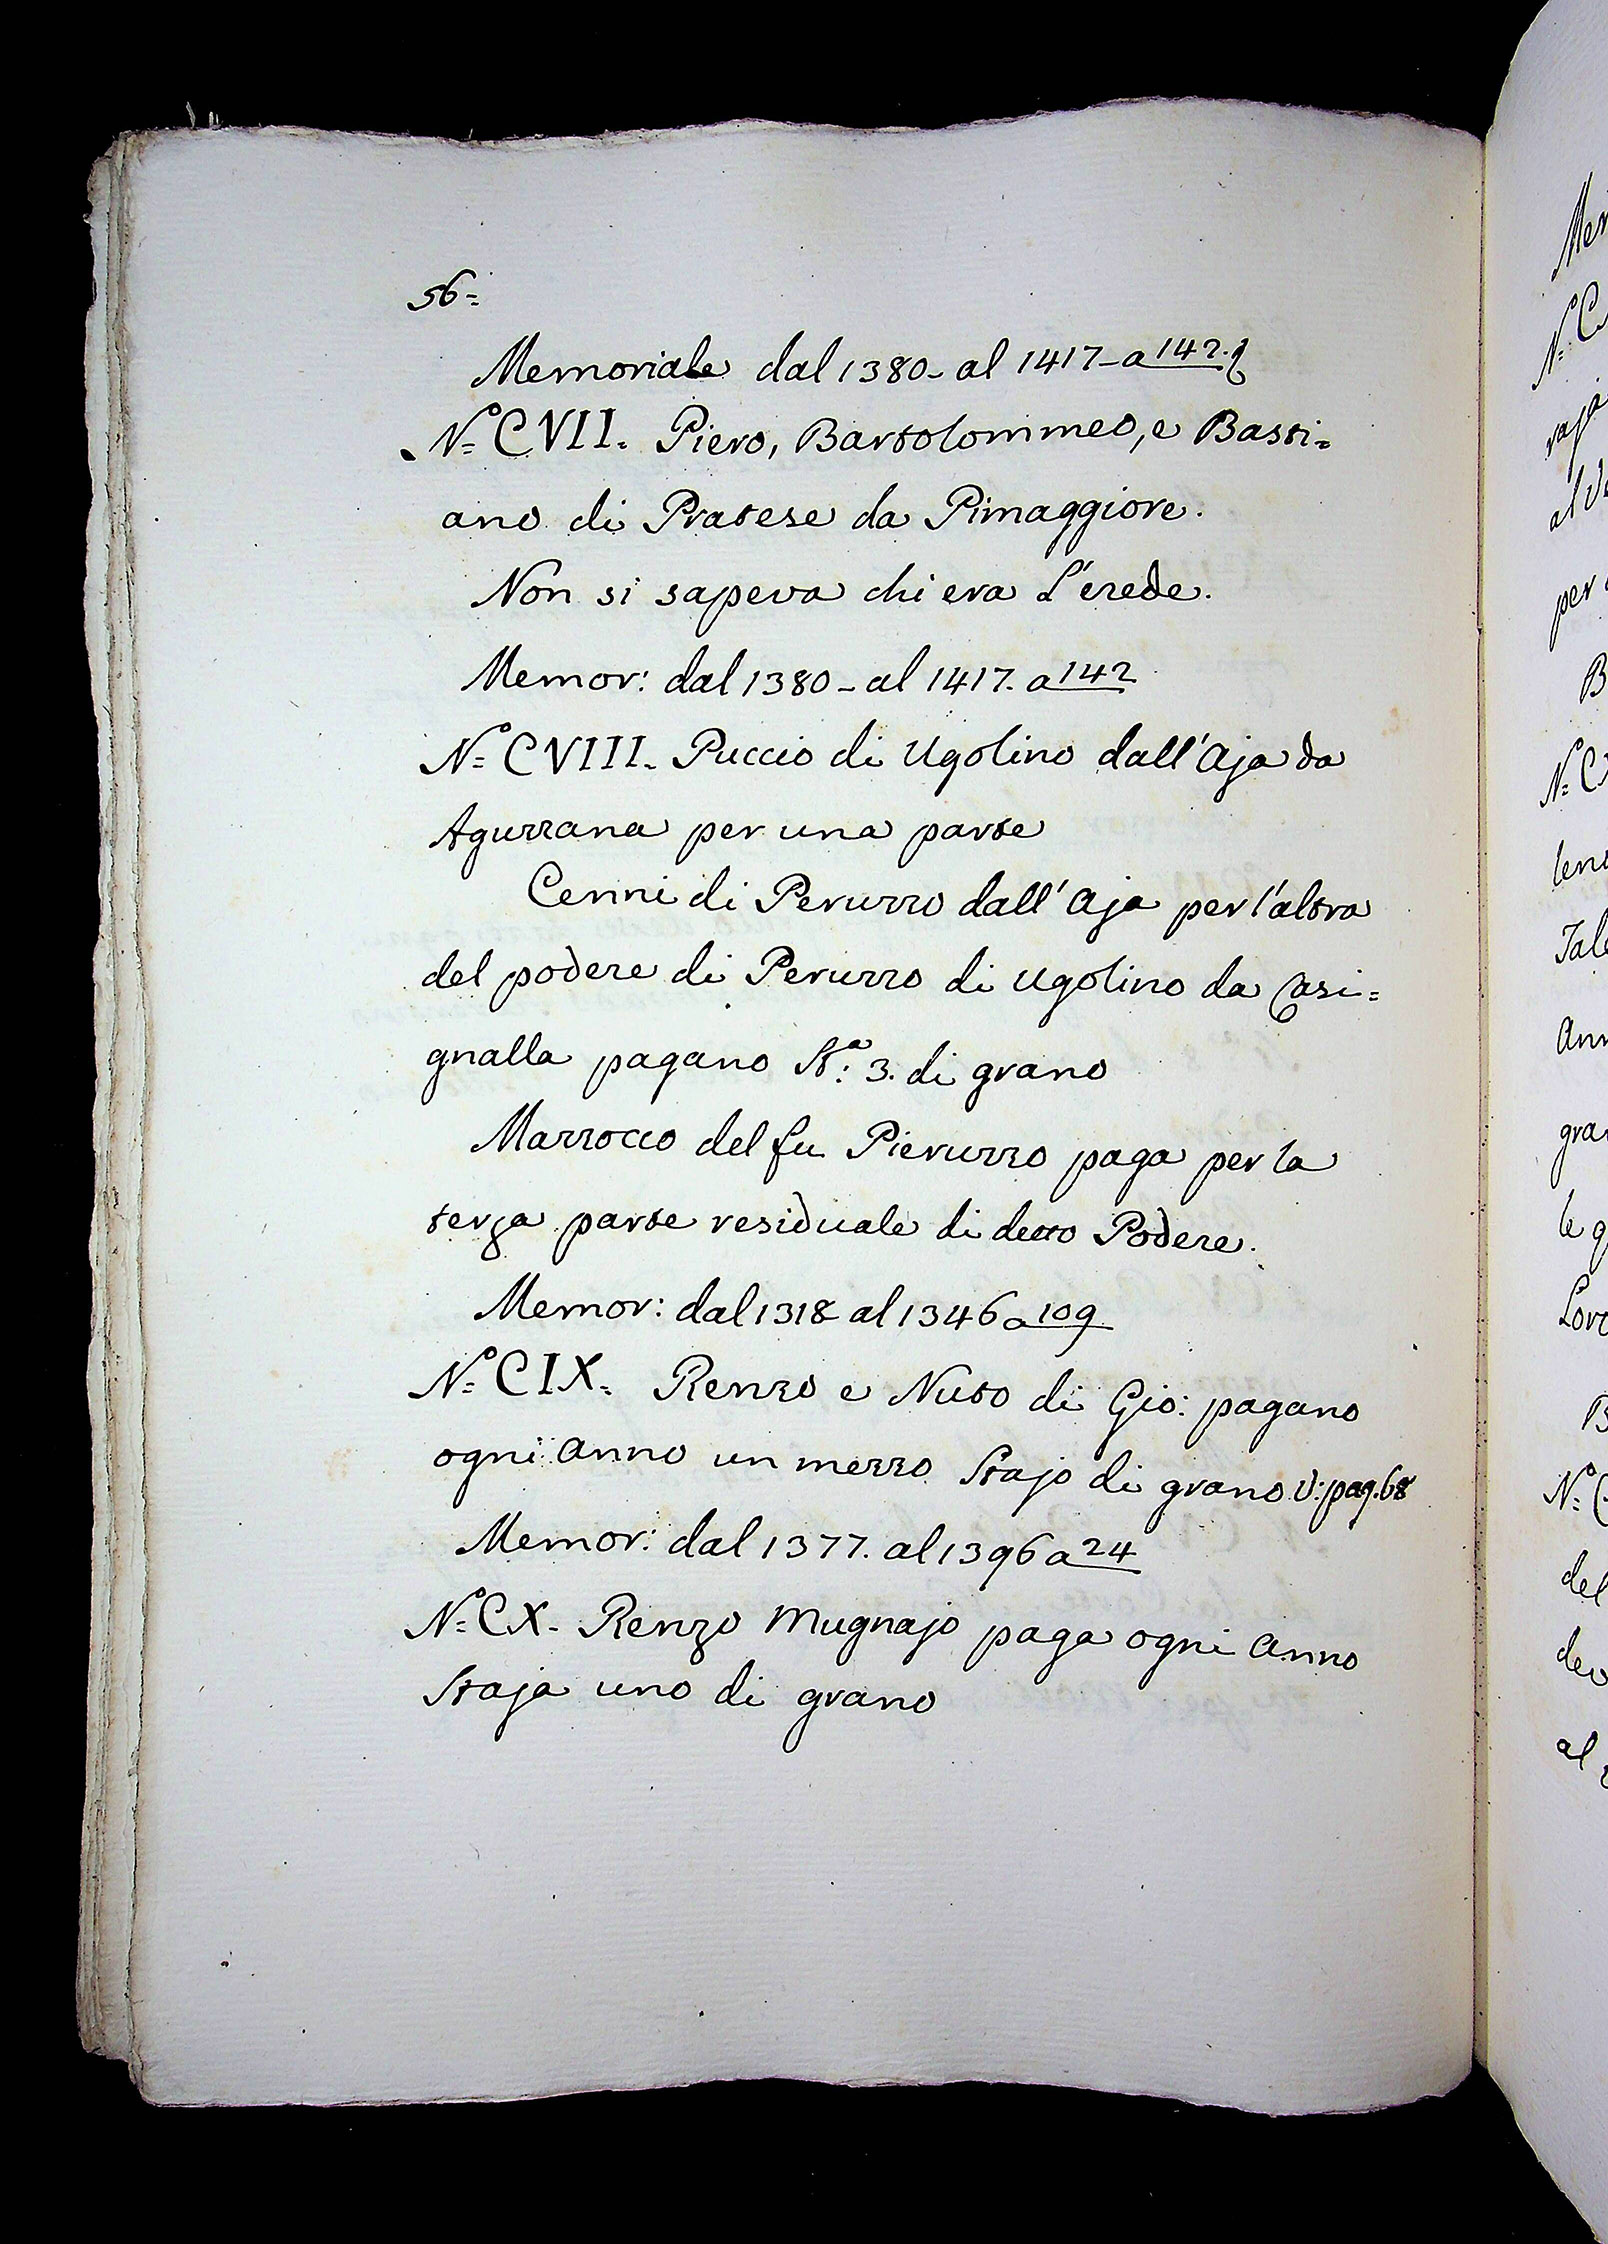 56=
Memoriale dal 1380- al 1417- a 142.
N.º CVII. Piero, Bartolommeo, e Basti=
ano di Pratese da Pimaggiore.
Non si sapeva chi era L'erede.
Memor: dal 1380- al 1417. a 142
N.º CVIII. Puccio di Ugolino dall'Aja da
Aguzzana per una parte
Cenni di Peruzzo dall'Aja per l'altra
del podere di Peruzzo di Ugolino da Casi=
gnalla pagano St.ª: 3. di grano
Mazzocco del fu Pieruzzo paga per la
terza parte residuale di detto Podere.
Memor: dal 1318 al 1346 a 109
N.º CIX. Renzo e Nuto di Gio: pagano
ogni anno un mezzo Stajo di grano V: pag. 68
Memor: dal 1377. al 1396 a 24
N.º CX. Renzo Mugnajo paga ogni anno
Staja uno di grano